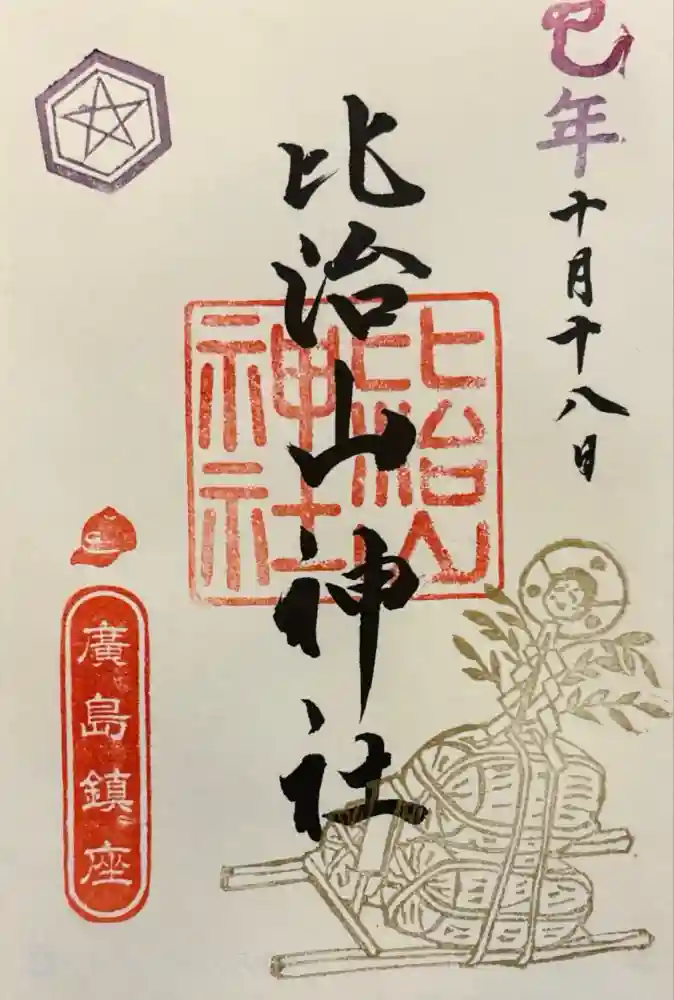 巳年
十月十八日
比治山神社
比治山
神社
廣島鎮座